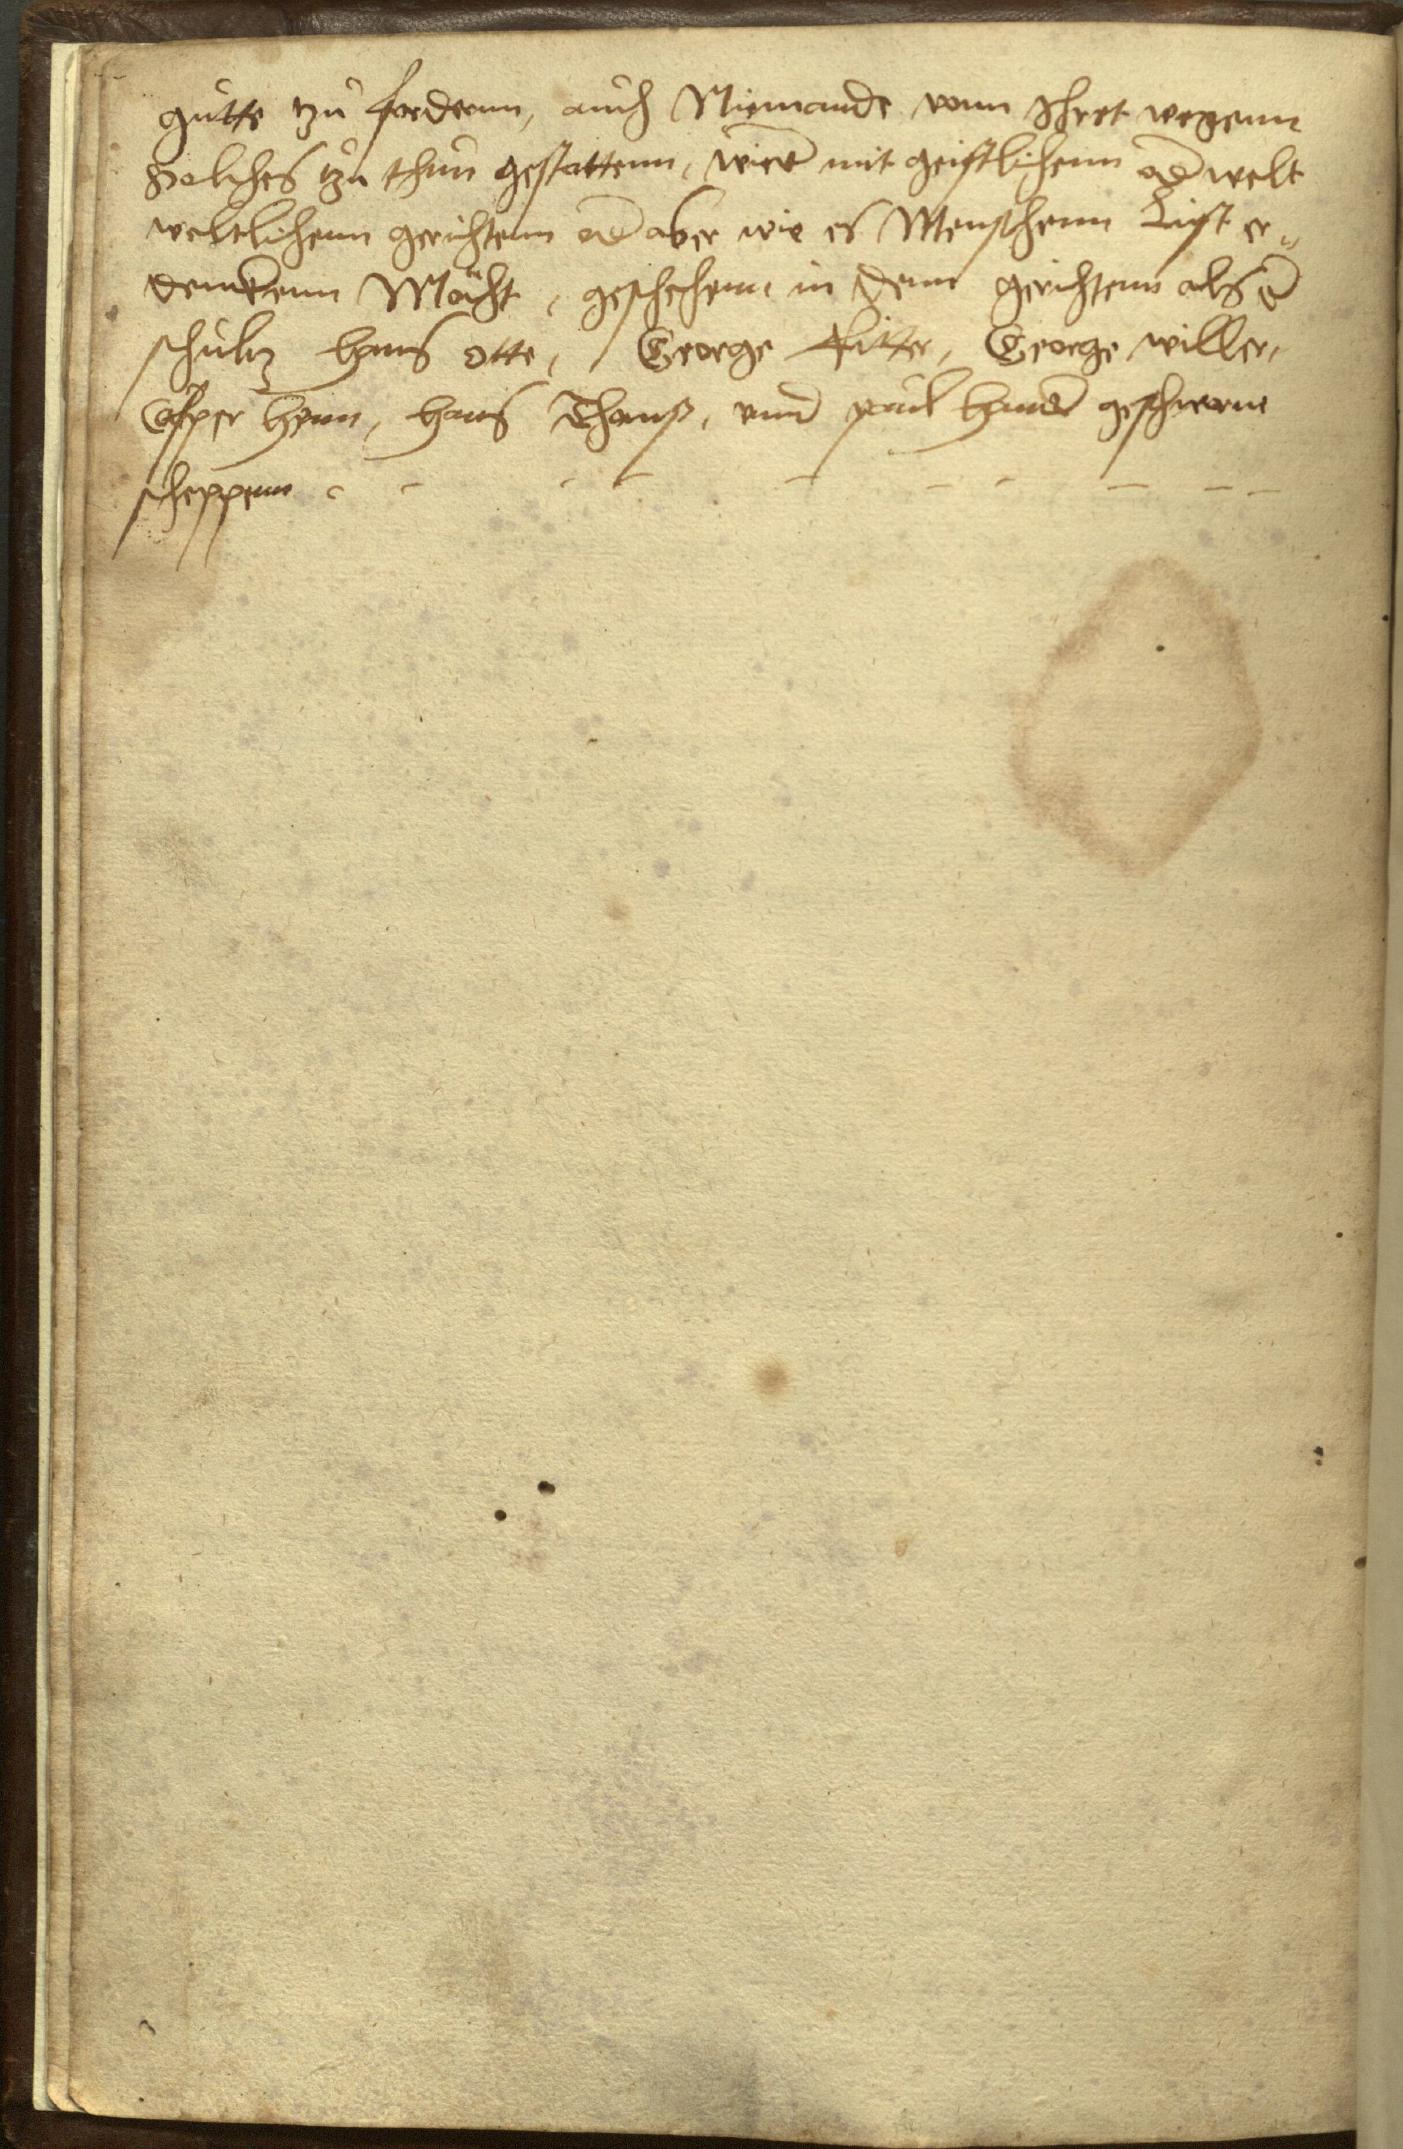 gutte tzu fordernn, auch Niemande vonn Ihret wegenn
Solches tzu thun gestattenn, wied mit geistlichenn od welt
weltlichenn gerichtenn od aber wie es Menschenn List er„
denckenn Möcht, geschehenn in denn gerichtenn als d
schultz hans otte, George Ritter, George willer,
Casper henn, hans Thams, vnnd paul geschworne
scheppenn